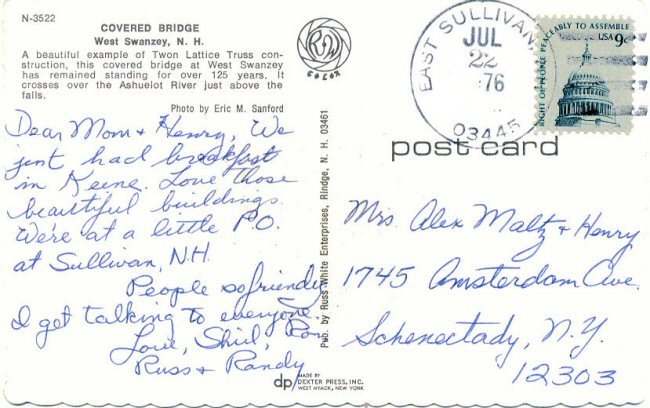 N-3522
COVERED BRIDGE
West Swanzey, N. H.
A beautiful example of Twon Lattice Truss con-
struction, this covered bridge at West Swanzey
has remained standing for over 125 years. It
crosses over the Ashuelot River just above the
falls.
Photo by Eric M. Sanford
Dear Mom + Henry, We
just had breakfast
in Keene. Love those
beautiful buildings.
We're at a little P.O.
at Sullivan, N.H.
People so friendly
I get talking to everyone.
Love, Shirl, Ron,
Russ + Randy
Pub. by Russ White Enterprises, Rindge, N. H. 03461
dp
MADE BY
DEXTER PRESS, INC.
WEST NYACK, NEW YORK
R&W
COLOR
EAST SULLIVAN,
JUL
22
'76
03445
RIGHT OF PEOPLE PEACEABLY TO ASSEMBLE
USA 9c
post card
Mrs. Alex Maltz + Henry
1745 Amsterdam Ave.
Schenectady, N.Y.
12303